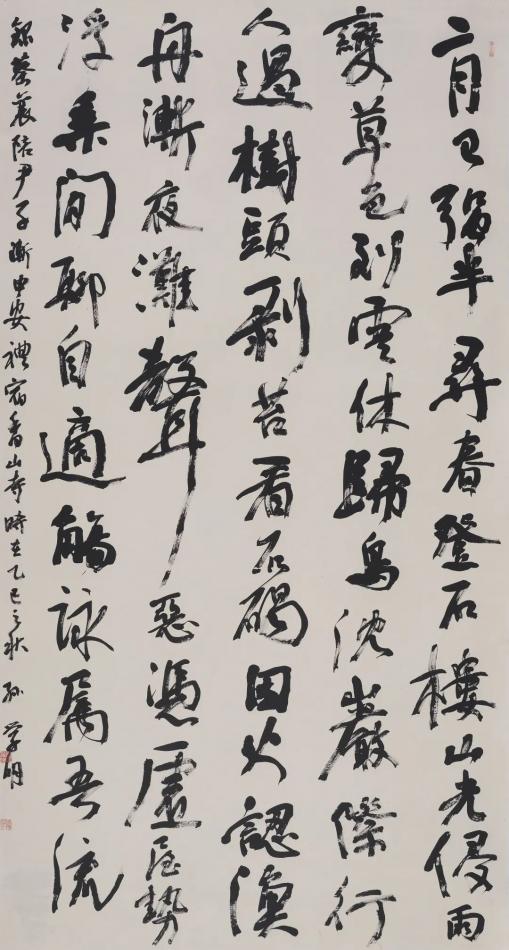 二月已彊半尋春登石樓山光侵雨
變草色到雲休歸鳥沈巖際行
人過樹頭剝苔看石碣因火認漁
舟漸夜灘聲惡憑虛屋勢
浮乘間聊自適觴詠屬吾流
錄蔡襄陪尹子漸中安禮宿香山寺時在乙巳之秋孫學明